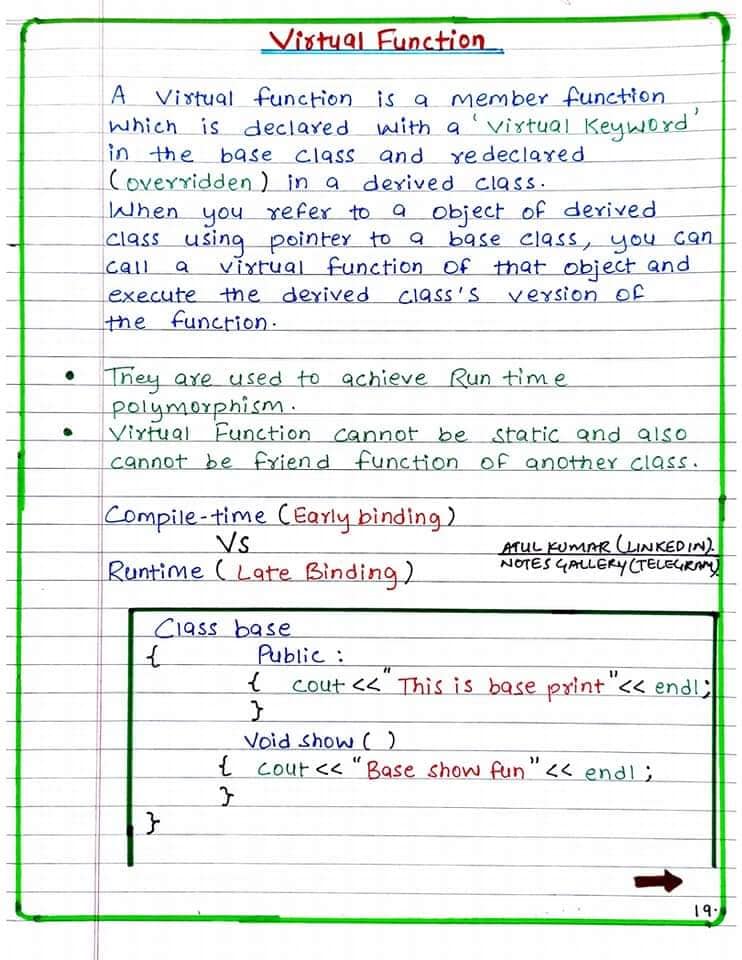 Virtual Function
A Virtual function is a member function
which is declared with a 'Virtual Keyword'
in the base class and redeclared
(overridden) in a derived class.
When you refer to a object of derived
class using pointer to a base class, you can
call a virtual function of that object and
execute the derived class's version of
the function.
• They are used to achieve Run time
polymorphism.
• Virtual Function cannot be static and also
cannot be friend function of another class.
Compile-time (Early binding)
Vs
Runtime (Late Binding)
ATUL KUMAR (LINKEDIN).
NOTES GALLERY (TELEGRAM)
Class base
{ Public :
{ cout << "This is base print" << endl;
}
Void show ( )
{ cout << "Base show fun" << endl ;
}
}
19.